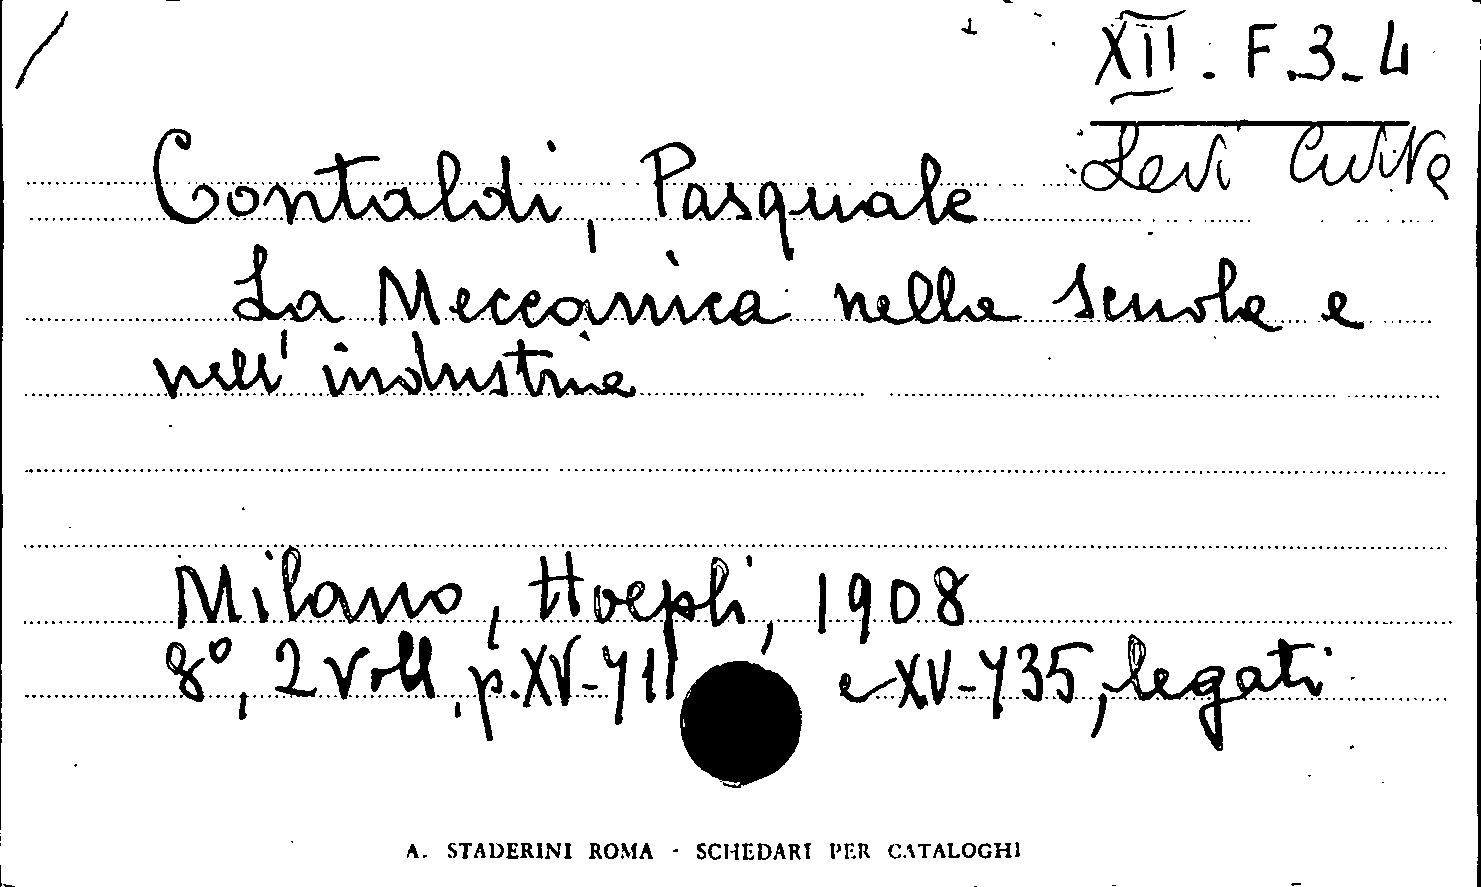 XII. F.3-4
Levi Civita
Contaldi, Pasquale
La Meccanica nella Scuola e
nell'industria
Milano, Hoepli, 1908
8°, 2 voll., p. XV-711 e XV-735, legati
A. STADERINI ROMA - SCHEDARI PER CATALOGHI